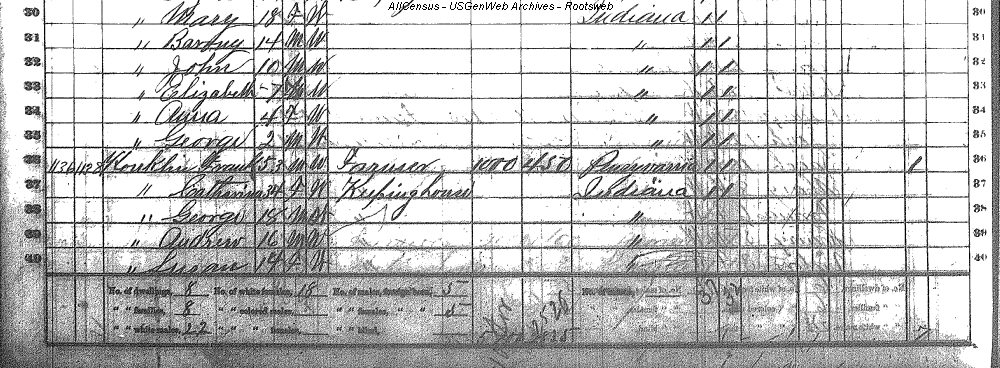 AllCensus - USGenWeb Archives - Rootsweb
30 " Mary 18 F W Indiana 1 1 30
31 " Barney 14 M W " 1 1 31
32 " John 10 M W " 1 1 32
33 " Elizabeth 7 W " 1 1 33
34 " Anna 4 F W " 1 1 34
35 " George 2 M W " 1 1 35
36 Konklin Frank 53 M W Farmer 1000 450 1 1 1 36
37 " Catharina 34 F W Keepinghouse Indiana 1 1 37
38 " George 18 M W " 38
39 " Andrew 16 M W " 39
40 " Susan 14 F W " 40
No. of dwellings, 8 No. of white females, 18 No. of males, foreign born, 5
" " families, 8 " " colored males, " " females, " " 5
" " white males, 22 " " " females, " " blind,